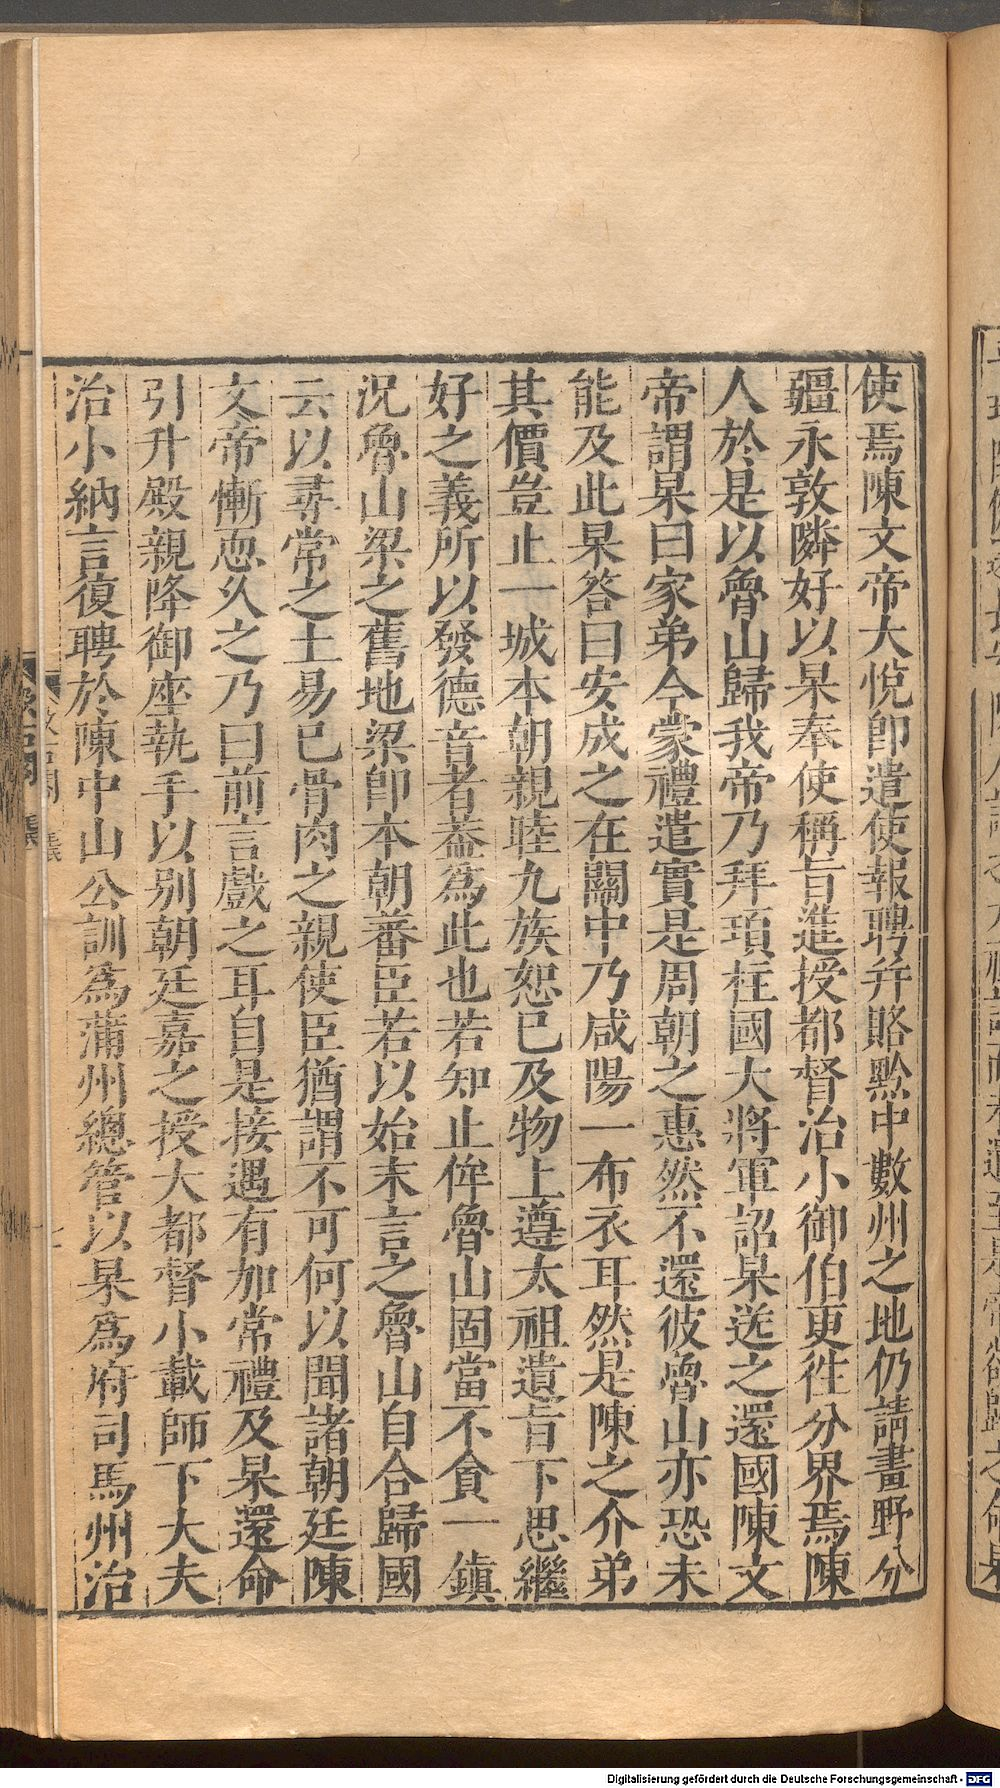 使焉陳文帝大悅卽遣使報聘并賂黔中數州之地仍請畫野分
疆永敦隣好以杲奉使稱旨進授都督治小御伯更徃分界焉陳
人於是以魯山歸我帝乃拜頊柱國大將軍詔杲送之還國陳文
帝謂杲曰家弟今蒙禮遣實是周朝之惠然不還彼魯山亦恐未
能及此杲答曰安成之在關中乃咸陽一布衣耳然是陳之介弟
其價豈止一城本朝親睦九族恕已及物上遵太祖遺旨下思繼
好之義所以發德音者葢爲此也若知止侔魯山固當不貪一鎮
況魯山梁之舊地梁卽本朝蕃臣若以始末言之魯山自合歸國
云以尋常之土易已骨肉之親使臣猶謂不可何以聞諸朝廷陳
文帝慚恧久之乃曰前言戲之耳自是接遇有加常禮及杲還命
引升殿親降御座執手以別朝廷嘉之授大都督小載師下大夫
治小納言復聘於陳中山公訓爲蒲州總管以杲爲府司馬州治
Digitalisierung gefördert durch die Deutsche Forschungsgemeinschaft - DFG